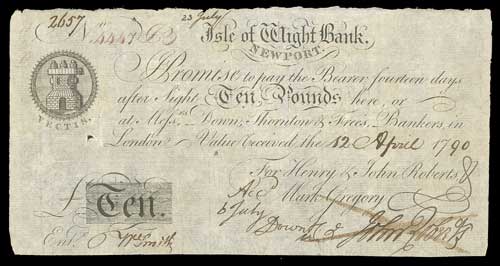 2657
23 July
Isle of Wight Bank.
NEWPORT.
Promise to pay the Bearer fourteen days
after Sight Ten Pounds here, or
at Messrs Down, Thornton & Frees, Bankers, in
London Value received the 12 April 1790
VECTIS.
For Henry & John Roberts &
Mark Gregory
£ Ten.
July
Down
John
Ent.
Smith